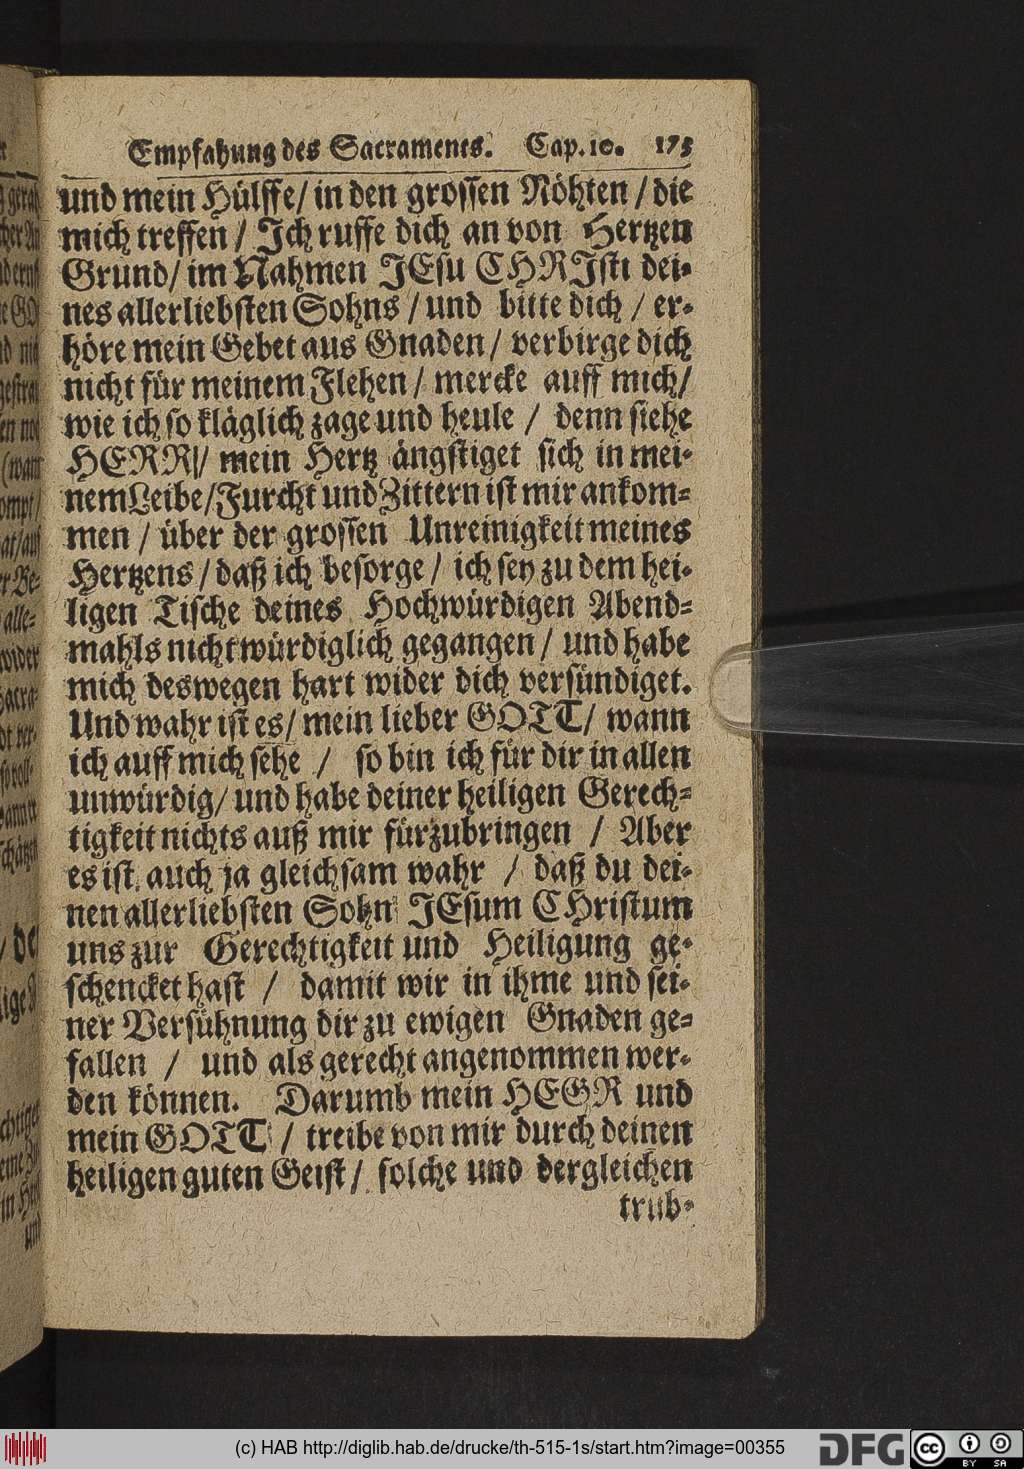 Empfahung des Sacramentes. Cap. 10. 175
und mein Hülffe/ in den grossen Nöhten / die
mich treffen / Jch ruffe dich an von Hertzen
Grund/ im Nahmen JEsu CHRJsti dei-
nes allerliebsten Sohns / und bitte dich / er-
höre mein Gebet aus Gnaden / verbirge dich
nicht für meinem Flehen / mercke auff mich/
wie ich so kläglich zage und heule / denn siehe
HERR/ mein Hertz ängstiget sich in mei-
nem Leibe/Furcht und Zittern ist mir ankom-
men / über der grossen Unreinigkeit meines
Hertzens / daß ich besorge / ich sey zu dem hei-
ligen Tische deines Hochwürdigen Abend-
mahls nicht würdiglich gegangen / und habe
mich deswegen hart wider dich versündiget.
Und wahr ist es/ mein lieber GOTT/ wann
ich auff mich sehe / so bin ich für dir in allen
unwürdig/ und habe deiner heiligen Gerech-
tigkeit nichts auß mir fürzubringen / Aber
es ist auch ja gleichsam wahr / daß du dei-
nen allerliebsten Sohn JEsum CHristum
uns zur Gerechtigkeit und Heiligung ge-
schencket hast / damit wir in ihme und sei-
ner Versühnung dir zu ewigen Gnaden ge-
fallen / und als gerecht angenommen wer-
den können. Darumb mein HEGR und
mein GOTT / treibe von mir durch deinen
heiligen guten Geist/ solche und dergleichen
trüb-
(c) HAB http://diglib.hab.de/drucke/th-515-1s/start.htm?image=00355
DFG
cc BY SA